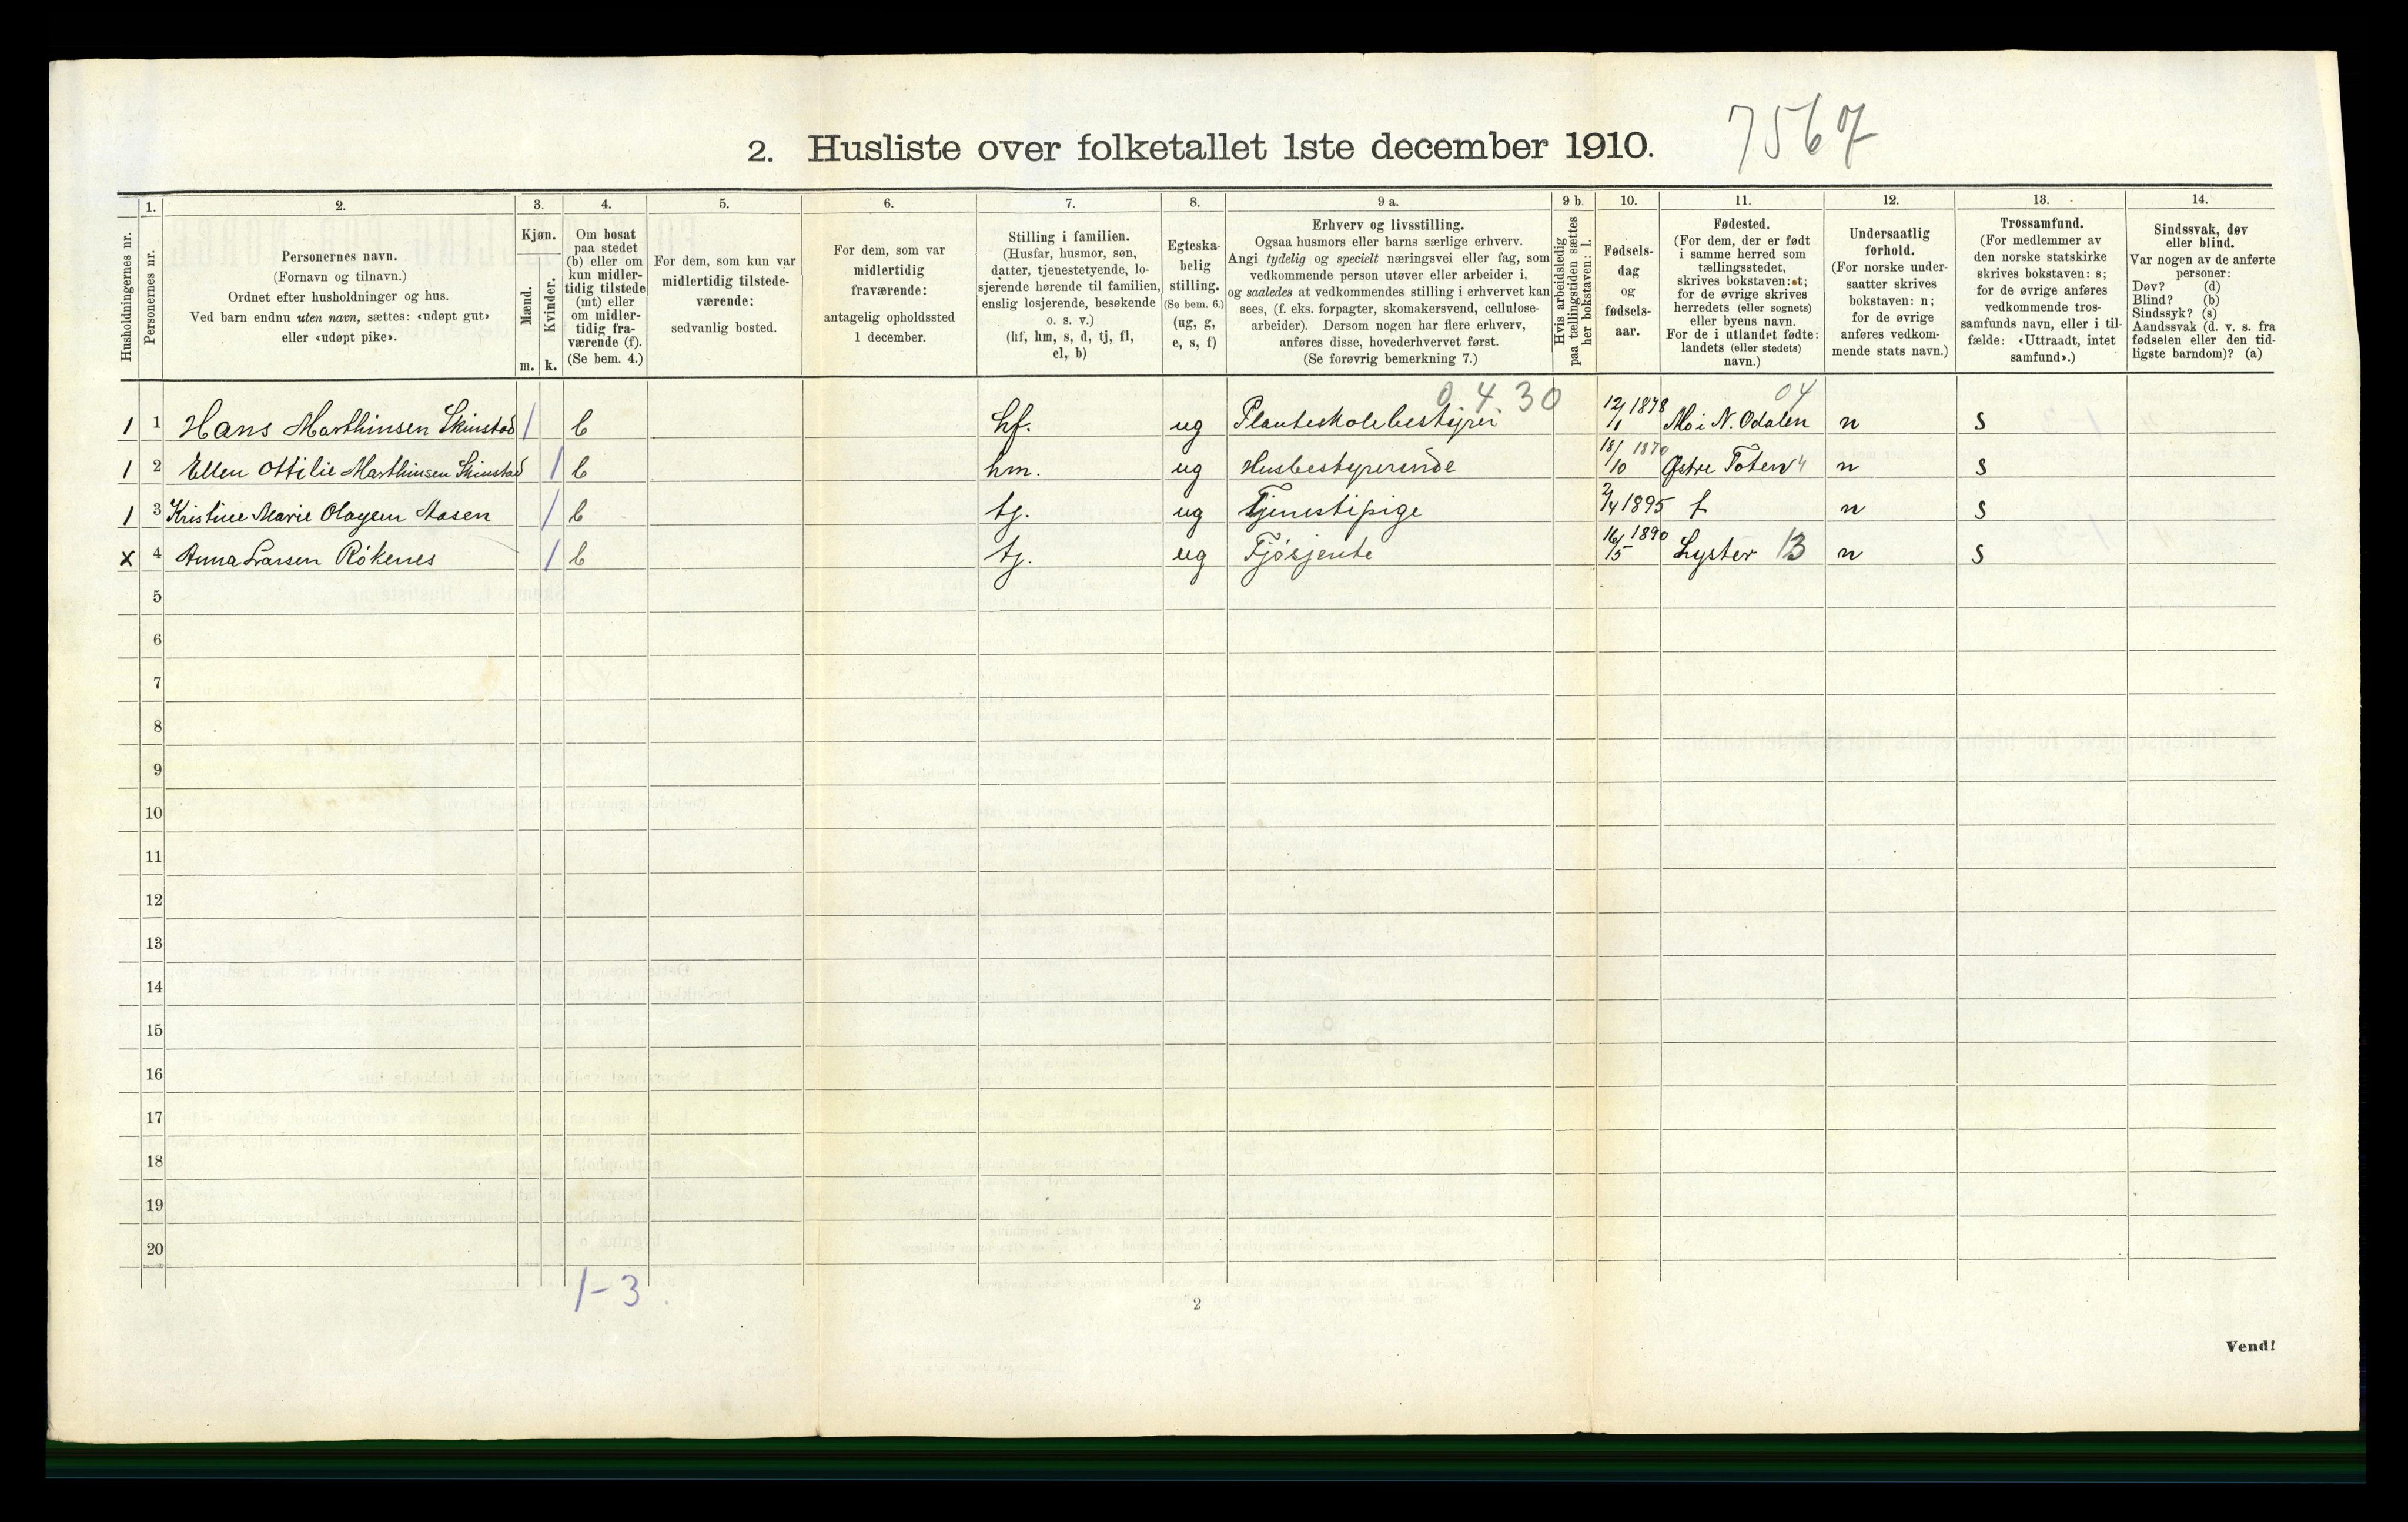 7567
2. Husliste over folketallet 1ste december 1910.
Husholdningernes nr.
1.
Personernes nr.
2.
Personernes navn.
(Fornavn og tilnavn.)
Ordnet efter husholdninger og hus.
Ved barn endnu uten navn, sættes: «udøpt gut»
eller «udøpt pike».
3.
Kjøn.
Mænd.
Kvinder.
m. k.
4.
Om bosat
paa stedet
(b) eller om
kun midler-
tidig tilstede
(mt) eller
om midler-
tidig fra-
værende (f).
(Se bem. 4.)
5.
For dem, som kun var
midlertidig tilstede-
værende:
sedvanlig bosted.
6.
For dem, som var
midlertidig
fraværende:
antagelig opholdssted
1 december.
7.
Stilling i familien.
(Husfar, husmor, søn,
datter, tjenestetyende, lo-
sjerende hørende til familien,
enslig losjerende, besøkende
o. s. v.)
(hf, hm, s, d, tj, fl,
el, b)
8.
Egteska-
belig
stilling.
(Se bem. 6.)
(ug, g,
e, s, f)
9 a.
Erhverv og livsstilling.
Ogsaa husmors eller barns særlige erhverv.
Angi tydelig og specielt næringsvei eller fag, som
vedkommende person utøver eller arbeider i,
og saaledes at vedkommendes stilling i erhvervet kan
sees, (f. eks. forpagter, skomakersvend, cellulose-
arbeider). Dersom nogen har flere erhverv,
anføres disse, hovederhvervet først.
(Se forøvrig bemerkning 7.)
9 b.
Hvis arbeidsledig
paa tællingstiden sættes
her bokstaven: l.
10.
Fødsels-
dag
og
fødsels-
aar.
11.
Fødested.
(For dem, der er født
i samme herred som
tællingsstedet,
skrives bokstaven: t;
for de øvrige skrives
herredets (eller sognets)
eller byens navn.
For de i utlandet fødte:
landets (eller stedets)
navn.)
12.
Undersaatlig
forhold.
(For norske under-
saatter skrives
bokstaven: n;
for de øvrige
anføres vedkom-
mende stats navn.)
13.
Trossamfund.
(For medlemmer av
den norske statskirke
skrives bokstaven: s;
for de øvrige anføres
vedkommende tros-
samfunds navn, eller i til-
fælde: «Uttraadt, intet
samfund».)
14.
Sindssvak, døv
eller blind.
Var nogen av de anførte
personer:
Døv? (d)
Blind? (b)
Sindssyk? (s)
Aandssvak (d. v. s. fra
fødselen eller den tid-
ligste barndom)? (a)
0.4.30
04
1 1 Hans Marthinsen Skinstad 1 b hf. ug Planteskolebestyrer 12/1 1878 Mo i N. Odalen n s
1 2 Ellen Ottilie Marthinsen Skinstad 1 b hm. ug Husbestyrerinde 18/10 1870 Østre Toten 4 n s
1 3 Kristine Marie Olagsen Aasen 1 b tj. ug Tjenestipige 2/4 1895 t n s
x 4 Anna Larsen Rökenes 1 b tj. ug Fjösjente 16/5 1890 Lyster 13 n s
5
6
7
8
9
10
11
12
13
14
15
16
17
18
19
20
1-3
2
Vend!